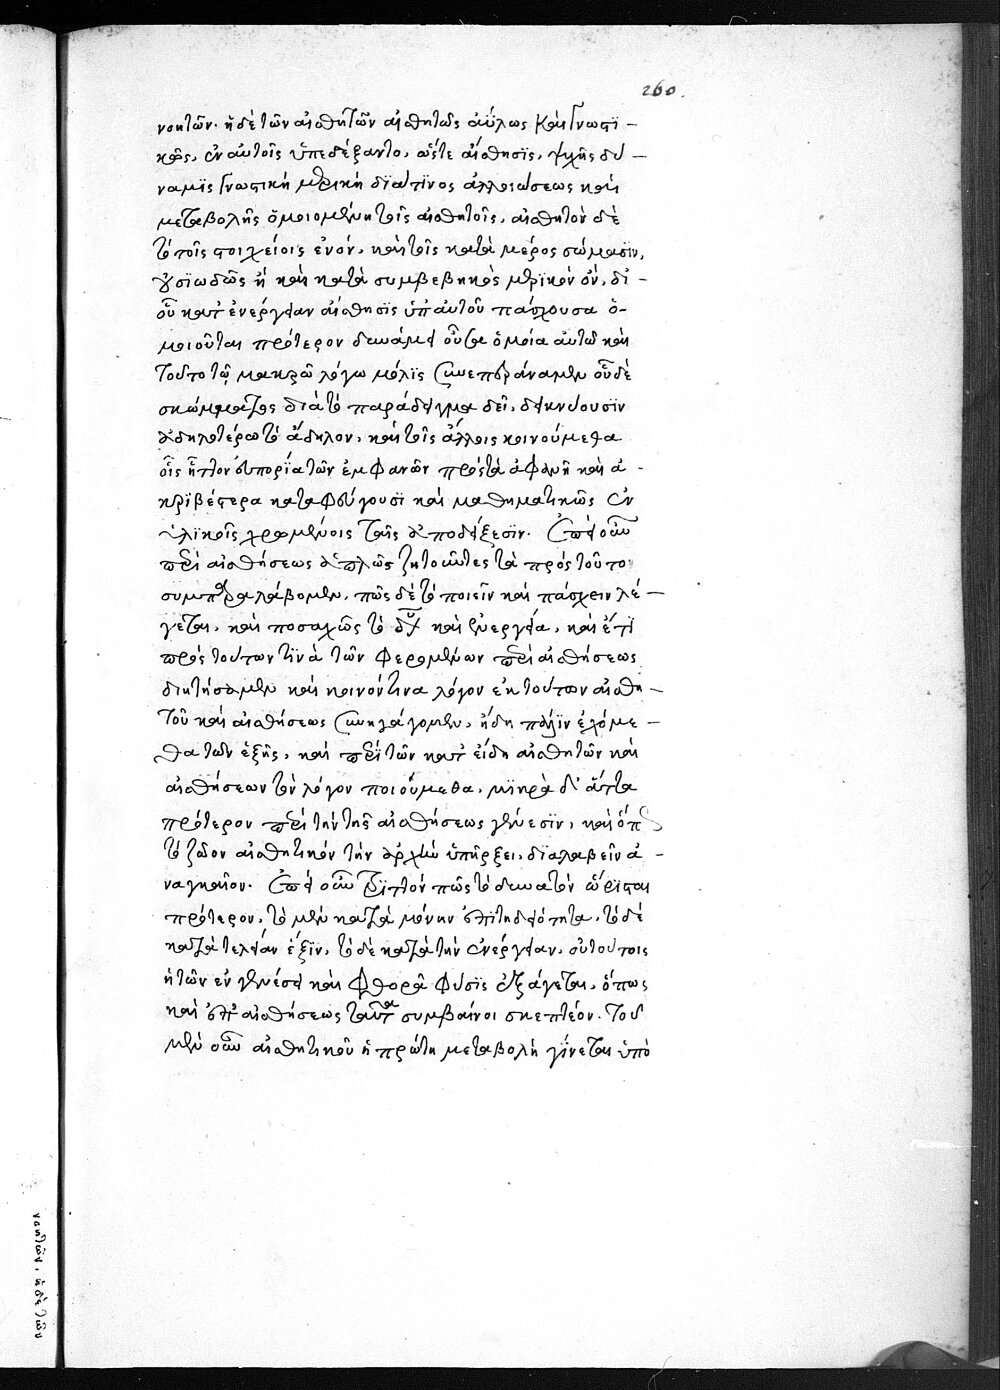 260.
νοητῶν. ἡ δὲ τῶν αἰσθητῶν αἰσθητῶς ἀΰλως καὶ γνωστι –
κῶς, ἐν αὐτοῖς ὑπεδέξαντο, ὥστε αἴσθησϊς, ψυχῆς δυ –
ναμϊς γνωστικὴ μερικὴ δϊά τϊνος ἀλλοιώσεως καὶ
μεταβολῆς ὁμοιουμένη τοῖς αἰσθητοῖς, αἰσθητὸν δὲ
τὸ τοῖς στοιχείοις ἐνόν, καὶ τοῖς κατὰ μέρος σώμασϊν,
οὐσϊωδῶς ἢ καὶ κατὰ συμβεβηκὸς μερϊκὸν ὄν, δι –
οὗ κατ' ἐνέργειαν αἴσθησϊς ὑπ' αὐτοῦ πάσχουσα ὁ–
μοιοῦται πρότερον δυνάμει οὖσα ὁμοία αὐτῷ καὶ
τοῦτο τῷ μακρῷ λόγῳ μόλϊς συνεπεράναμεν οὐδὲ
σκώμματος διὰ τὸ παράδειγμα δεῖ, δεικνύουσϊν
ἀδηλοτέρω τὸ ἄδηλον, καὶ τοῖς ἄλλοις κοινούμεθα
οἷς ἧττον εὐπορία τῶν ἐμφανῶν πρὸς τὰ ἀφανῆ καὶ ἀ –
κρϊβέστερα καταφεύγουσϊ καὶ μαθηματικῶς ἐν
ὑλϊκοῖς χρωμένοις ταῖς ἀποδείξεσϊν. Ἐπεὶ οὖν
περὶ αἰσθήσεως ἁπλῶς ζητοῦντες τὰ πρὸς τοῦτο
συμπαραλάβομεν, πῶς δὲ τὸ ποιεῖν καὶ πάσχειν λέ –
γεται, καὶ ποσαχῶς τὸ δυ καὶ ἐνεργεία, καὶ ἔτϊ
πρὸς τούτων τϊνὰ τῶν φερομένων περὶ αἰσθήσεως
διητήσαμεν καὶ κοινόν τινα λόγον ἐκ τούτων αἰσθη –
τοῦ καὶ αἰσθήσεως συνηγάγομεν, ἤδη πάλϊν ἑλόμε –
θα τῶν ἑξῆς, καὶ περὶ τῶν κατ' εἴδη αἰσθητῶν καὶ
αἰσθήσεων τὸν λόγον ποιούμεθα, μϊκρὰ δ' ἄττα
πρότερον περὶ τὴν τῆς αἰσθήσεως γένεσϊν, καὶ ὅπ
τὸ ζῶον αἰσθητικὸν τὴν ἀρχὴν ὑπῆρξει, δϊαλαβεῖν ἀ –
ναγκαῖον. Ἐπεὶ οὖν τρϊττὸν πῶς τὸ δυνατὸν ὥρϊσται
πρότερον, τὸ μὲν κατὰ μόνην ἐπϊτηδειότητα, τὸ δὲ
κατὰ τελείαν ἕξϊν, τὸ δὲ κατὰ τὴν ἐνέργειαν, οὐ τούτοις
ἡ τῶν ἐν γενέσει καὶ φθορᾷ φύσϊς ἐξάγεται, ὅπως
καὶ ἐπ' αἰσθήσεως ταῦτα συμβαίνοι σκεπτέον. Τοῦ
μὲν οὖν αἰσθητικοῦ ἡ πρώτη μεταβολὴ γίνεται ὑπὸ
νοητῶν. ἡ δὲ τῶν